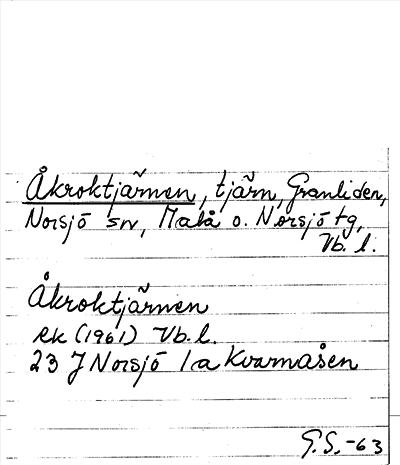 Åkroktjärnen, tjärn, Granliden,
Norsjö sn, Malå o. Norsjö tg,
Vb. l.
Åkroktjärnen
ek (1961) Vb. l.
23 J Norsjö 1a Kvarnåsen
G.S. -63